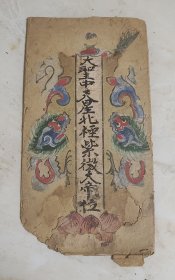 大聖中天星主北極紫微大帝位